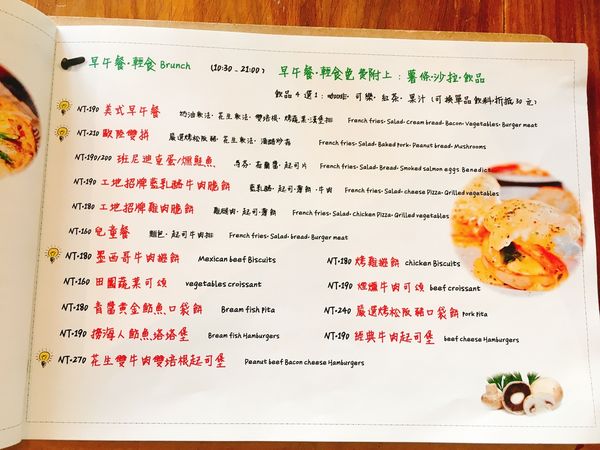 早午餐·輕食 Brunch (10:30 - 21:00) 早午餐·輕食包餐附上：薯條·沙拉·飲品
飲品 4 選 1：咖啡 可樂·紅茶·果汁（可換單品飲料·折抵 30 元）
NT·190 美式早午餐 奶油軟法·花生軟法·雙培根·烤蔬菜·漢堡排 French fries· Salad· Cream bread· Bacon· Vegetables· Burger meat
NT·210 歐陸雙拼 嚴選烤松阪豬·花生軟法· French fries· Salad· Baked pork· Peanut bread· Mushrooms
NT·190/200 班尼迪克蛋/燻鮭魚 起司片 French fries· Salad· Bread· Smoked salmon eggs Benedict
NT·190 工地招牌藍乳酪牛肉脆餅 藍乳酪·起司·薄餅·牛肉 French fries· Salad· cheese Pizza· Grilled vegetables
NT·180 工地招牌雞肉脆餅 雞腿肉·起司·薄餅 French fries· Salad· chicken Pizza· Grilled vegetables
NT·160 兒童餐 麵包·起司牛肉排 French fries· Salad· bread· Burger meat
NT·180 墨西哥牛肉捲餅 Mexican beef Biscuits NT·180 烤雞捲餅 chicken Biscuits
NT·160 田園蔬菜可頌 vegetables croissant NT·190 煙燻牛肉可頌 beef croissant
NT·180 青醬黃金鯛魚口袋餅 Bream fish Pita NT·240 嚴選烤松阪豬口袋餅 Pork pita
NT·190 撈海人鯛魚塔塔堡 Bream fish Hamburgers NT·190 經典牛肉起司堡 beef cheese Hamburgers
NT·270 花生雙牛肉雙培根起司堡 Peanut beef Bacon cheese Hamburgers